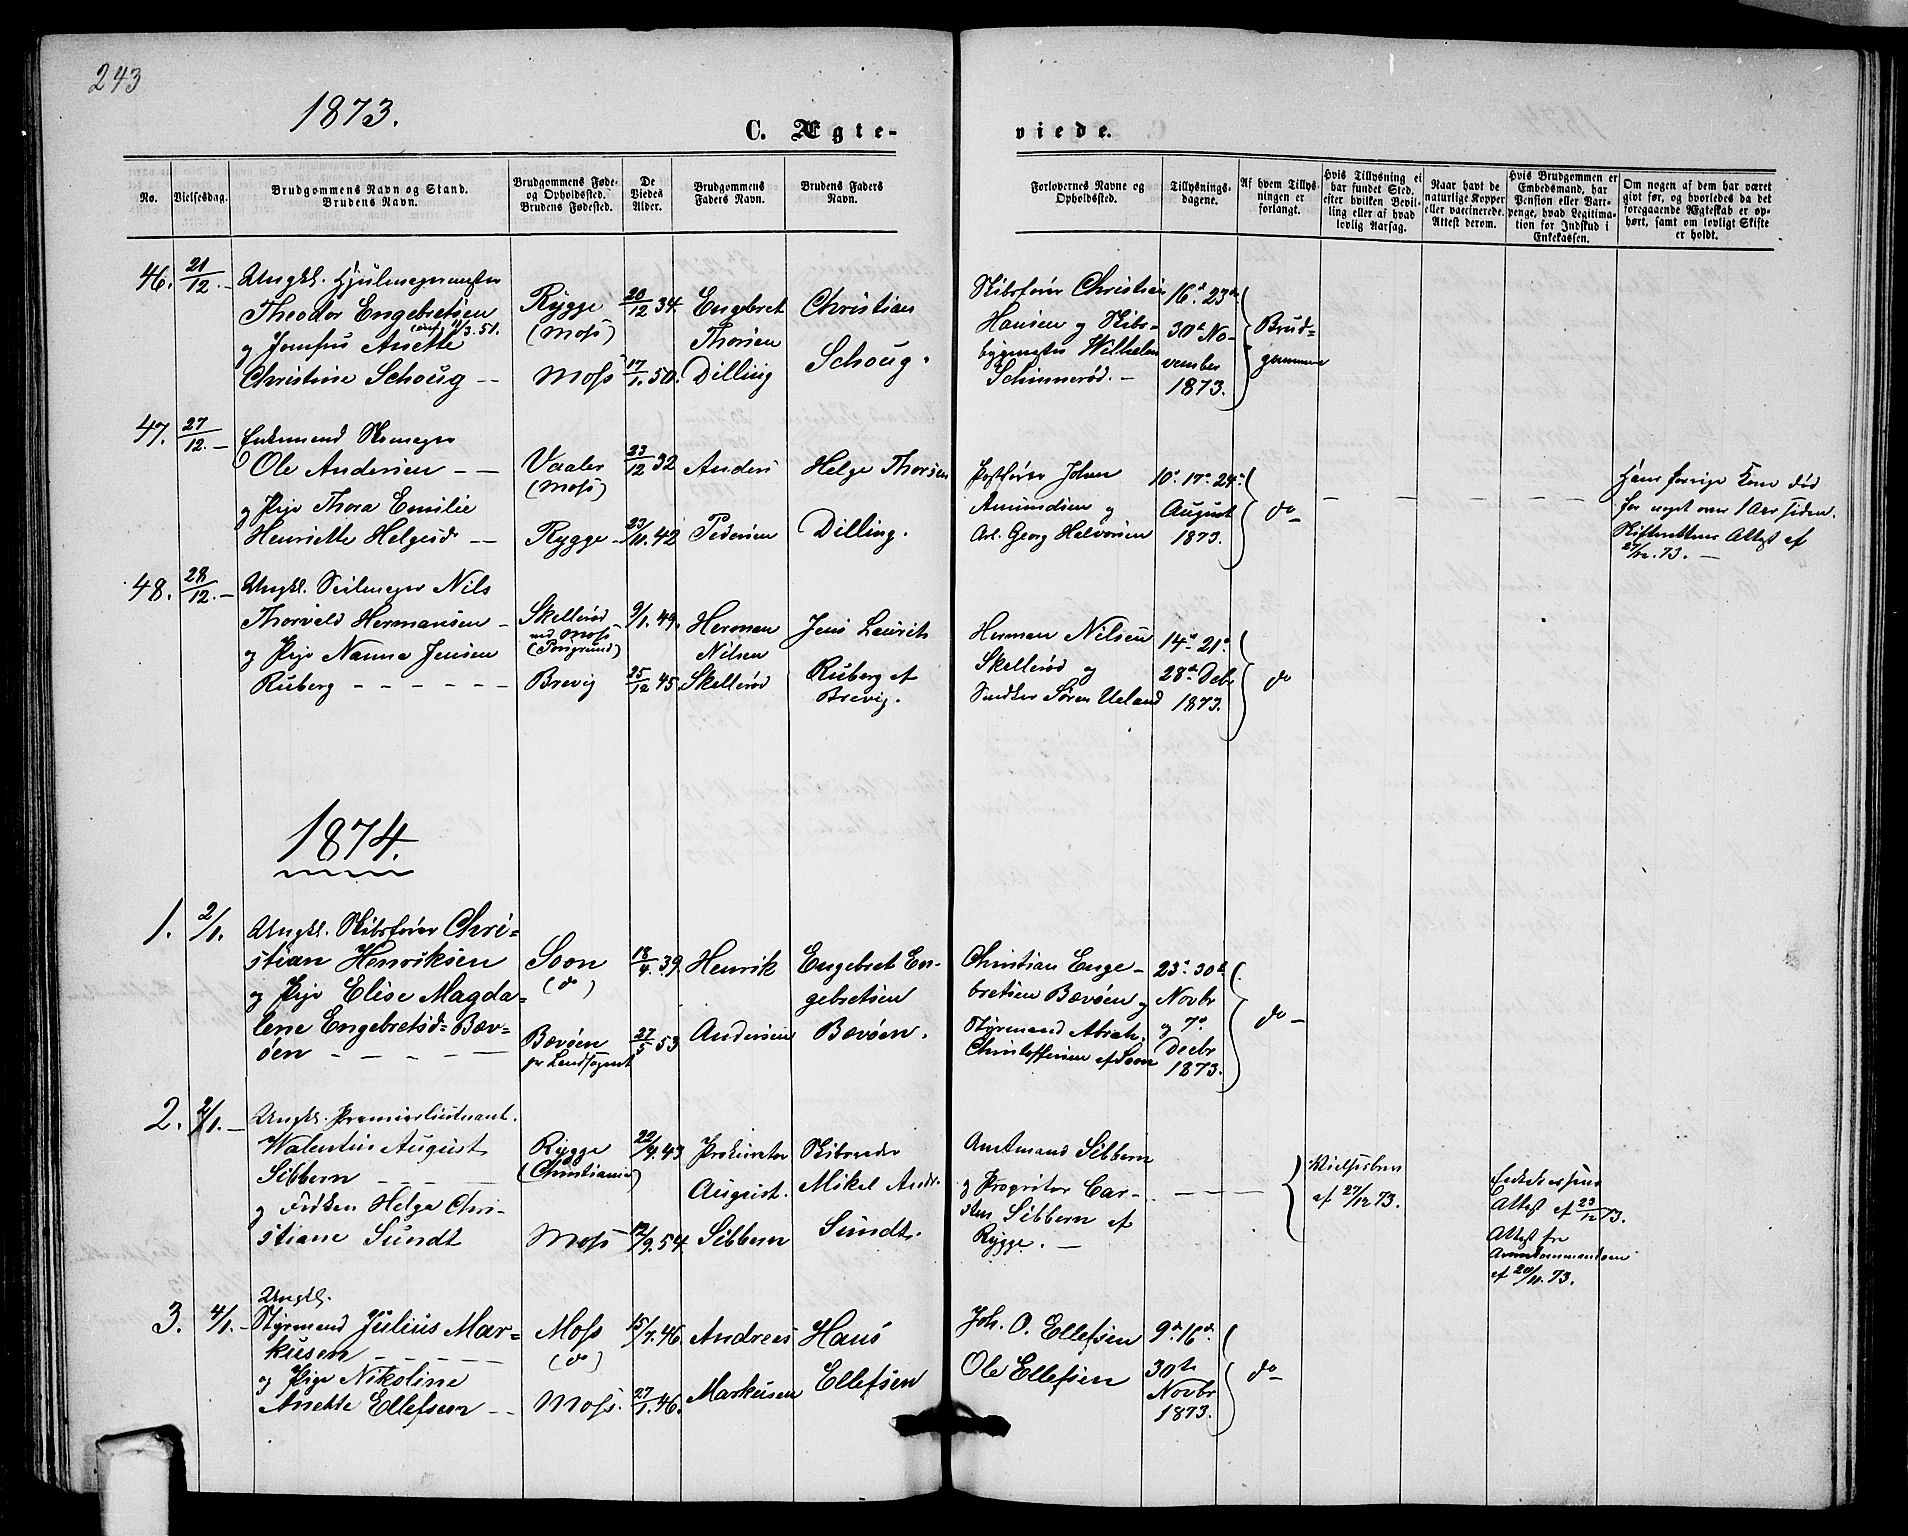 243
1873.
C. Ægte-
viede.
No.
Vielsesdag.
Brudgommens Navn og Stand.
Brudens Navn.
Brudgommens Føde-
og Opholdssted.
Brudens Fødested.
De
Viedes
Alder.
Brudgommens
Faders Navn.
Brudens Faders
Navn.
Forlovernes Navne og
Opholdssted.
Tillysnings-
dagene.
Af hvem Tillys-
ningen er
forlangt.
Hvis Tillysning ei
har fundet Sted,
efter hvilken Bevil-
ling eller af hvad
lovlig Aarsag.
Naar havt de
naturlige Kopper
eller vaccinerede.
Attest derom.
Hvis Brudgommen er
Embedsmand, har
Pension eller Vart-
penge, hvad Legitima-
tion for Indskud i
Enkekassen.
Om nogen af dem har været
givt før, og hvorledes da det
foregaaende Ægteskab er op-
hørt, samt om lovligt Skifte
er holdt.
46. 21/12. –
Ungkl. Hjulmagermester
Theodor Engebretsen
og Jomfru Anette
Christine Schoug –
Rygge
(Moss)
Moss
20/12 34.
17/1. 50.
Engebret
Thorsen
Dilling
Christian
Schoug.
Skibsfører Christian
Hansen og Skibs-
bygmester Wilhelm
Schinnerød. –
16de 23de
30te No-
vember
1873.
Brud-
gommen
47. 27/12. –
Enkemand Skomager
Ole Andersen – –
og Pige Thora Emilie
Henriette Helgesd. – –
Vaaler
(Moss)
Rygge –
23/12 32
23/11. 42
Anders
Pedersen
Helge Thorsen
Dilling.
Postfører Johan
Amundsen og
Arb. Georg Halvorsen
10de 17de 24de
August
1873.
do –
Hans forrige Kone død
for noget over 1 Aar siden.
Skifterettens Attest af
27/12. 73. –
48. 28/12. –
Ungkl. Seilmager Nils
Thorvald Hermansen –
og Pige Nanna Jensen
Ruberg – – – – – –
Skellerød
ved Moss
Brevig
9/1. 49.
25/12 45.
Herman
Nilsen
Skellerød
Jens Laurits
Ruberg af
Brevig.
Herman Nilsen
Skellerød og
Snedker Søren Ueland
14de 21de
28de Debr
1873.
do
1874.
1. 2/1.
Ungkl. Skibsfører Chri=
stian Henriksen
og Pige Elise Magda=
lene Engebretsd= Bæv=
øen – – – – –
Soon
(do)
Bævøen
pr Landsognet
18/4. 39.
27/5 53
Henrik
Andersen
Engebret En-
gebretsen
Bævøen.
Christian Enge-
bretsen Bævøen og
Styrmand Abrah.
Christoffersen af Soon
23de 30te
Novbr
og 7de
Decbr
1873.
do –
2. 2/1. –
Ungkl. Premierlieutnant.
Walentin August
Sibbern – – –
og Frøken Helga Chri-
stiane Sundt
Rygge
(Christiania)
Moss
22/4. 43.
12/9. 54.
Prokurator
August.
Sibbern
Skibsreder
Mikel Andr.
Sundt.
Amtmand Sibbern
og Proprietær Car-
sten Sibbern af
Rygge. –
Vielsesbrev
af 27/12 73.
Enkekassens
Attest af 23/12 73.
Attest fra
Armekommandoen
af 20/11. 73.
3. 4/1. –
Ungkl.
Styrmand Julius Mar=
kusen – – – – –
og Pige Nikoline
Anette Ellefsen – –
Moss
(do)
Moss.
15/7. 46.
27/1. 46.
Andreas
Markusen
Hans
Ellefsen
Joh. O. Ellefsen
Ole Ellefsen
9de 16de
30te
Novbr
1873.
do –